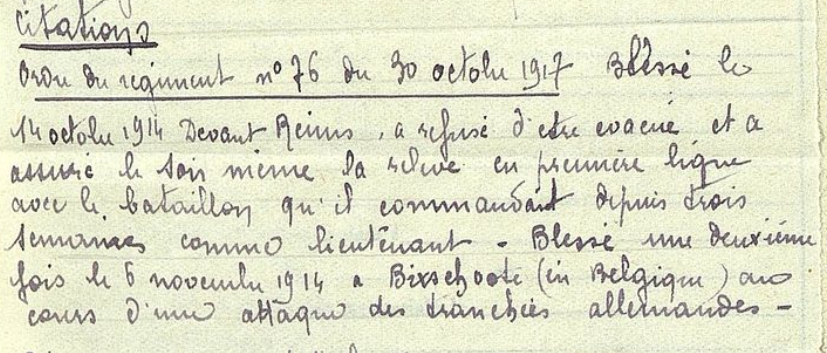 Citations
Ordre du régiment nº 76 du 30 octobre 1917 Blessé le
14 octobre 1914 Devant Reims, a refusé d'etre evacué et a
assuré le soir même la relève en première ligne
avec le bataillon qu'il commandait depuis trois
semaines comme lieutenant - Blessé une deuxième
fois le 6 novembre 1914 a Bixschoote (en Belgique) au
cours d'une attaque des tranchées allemandes -